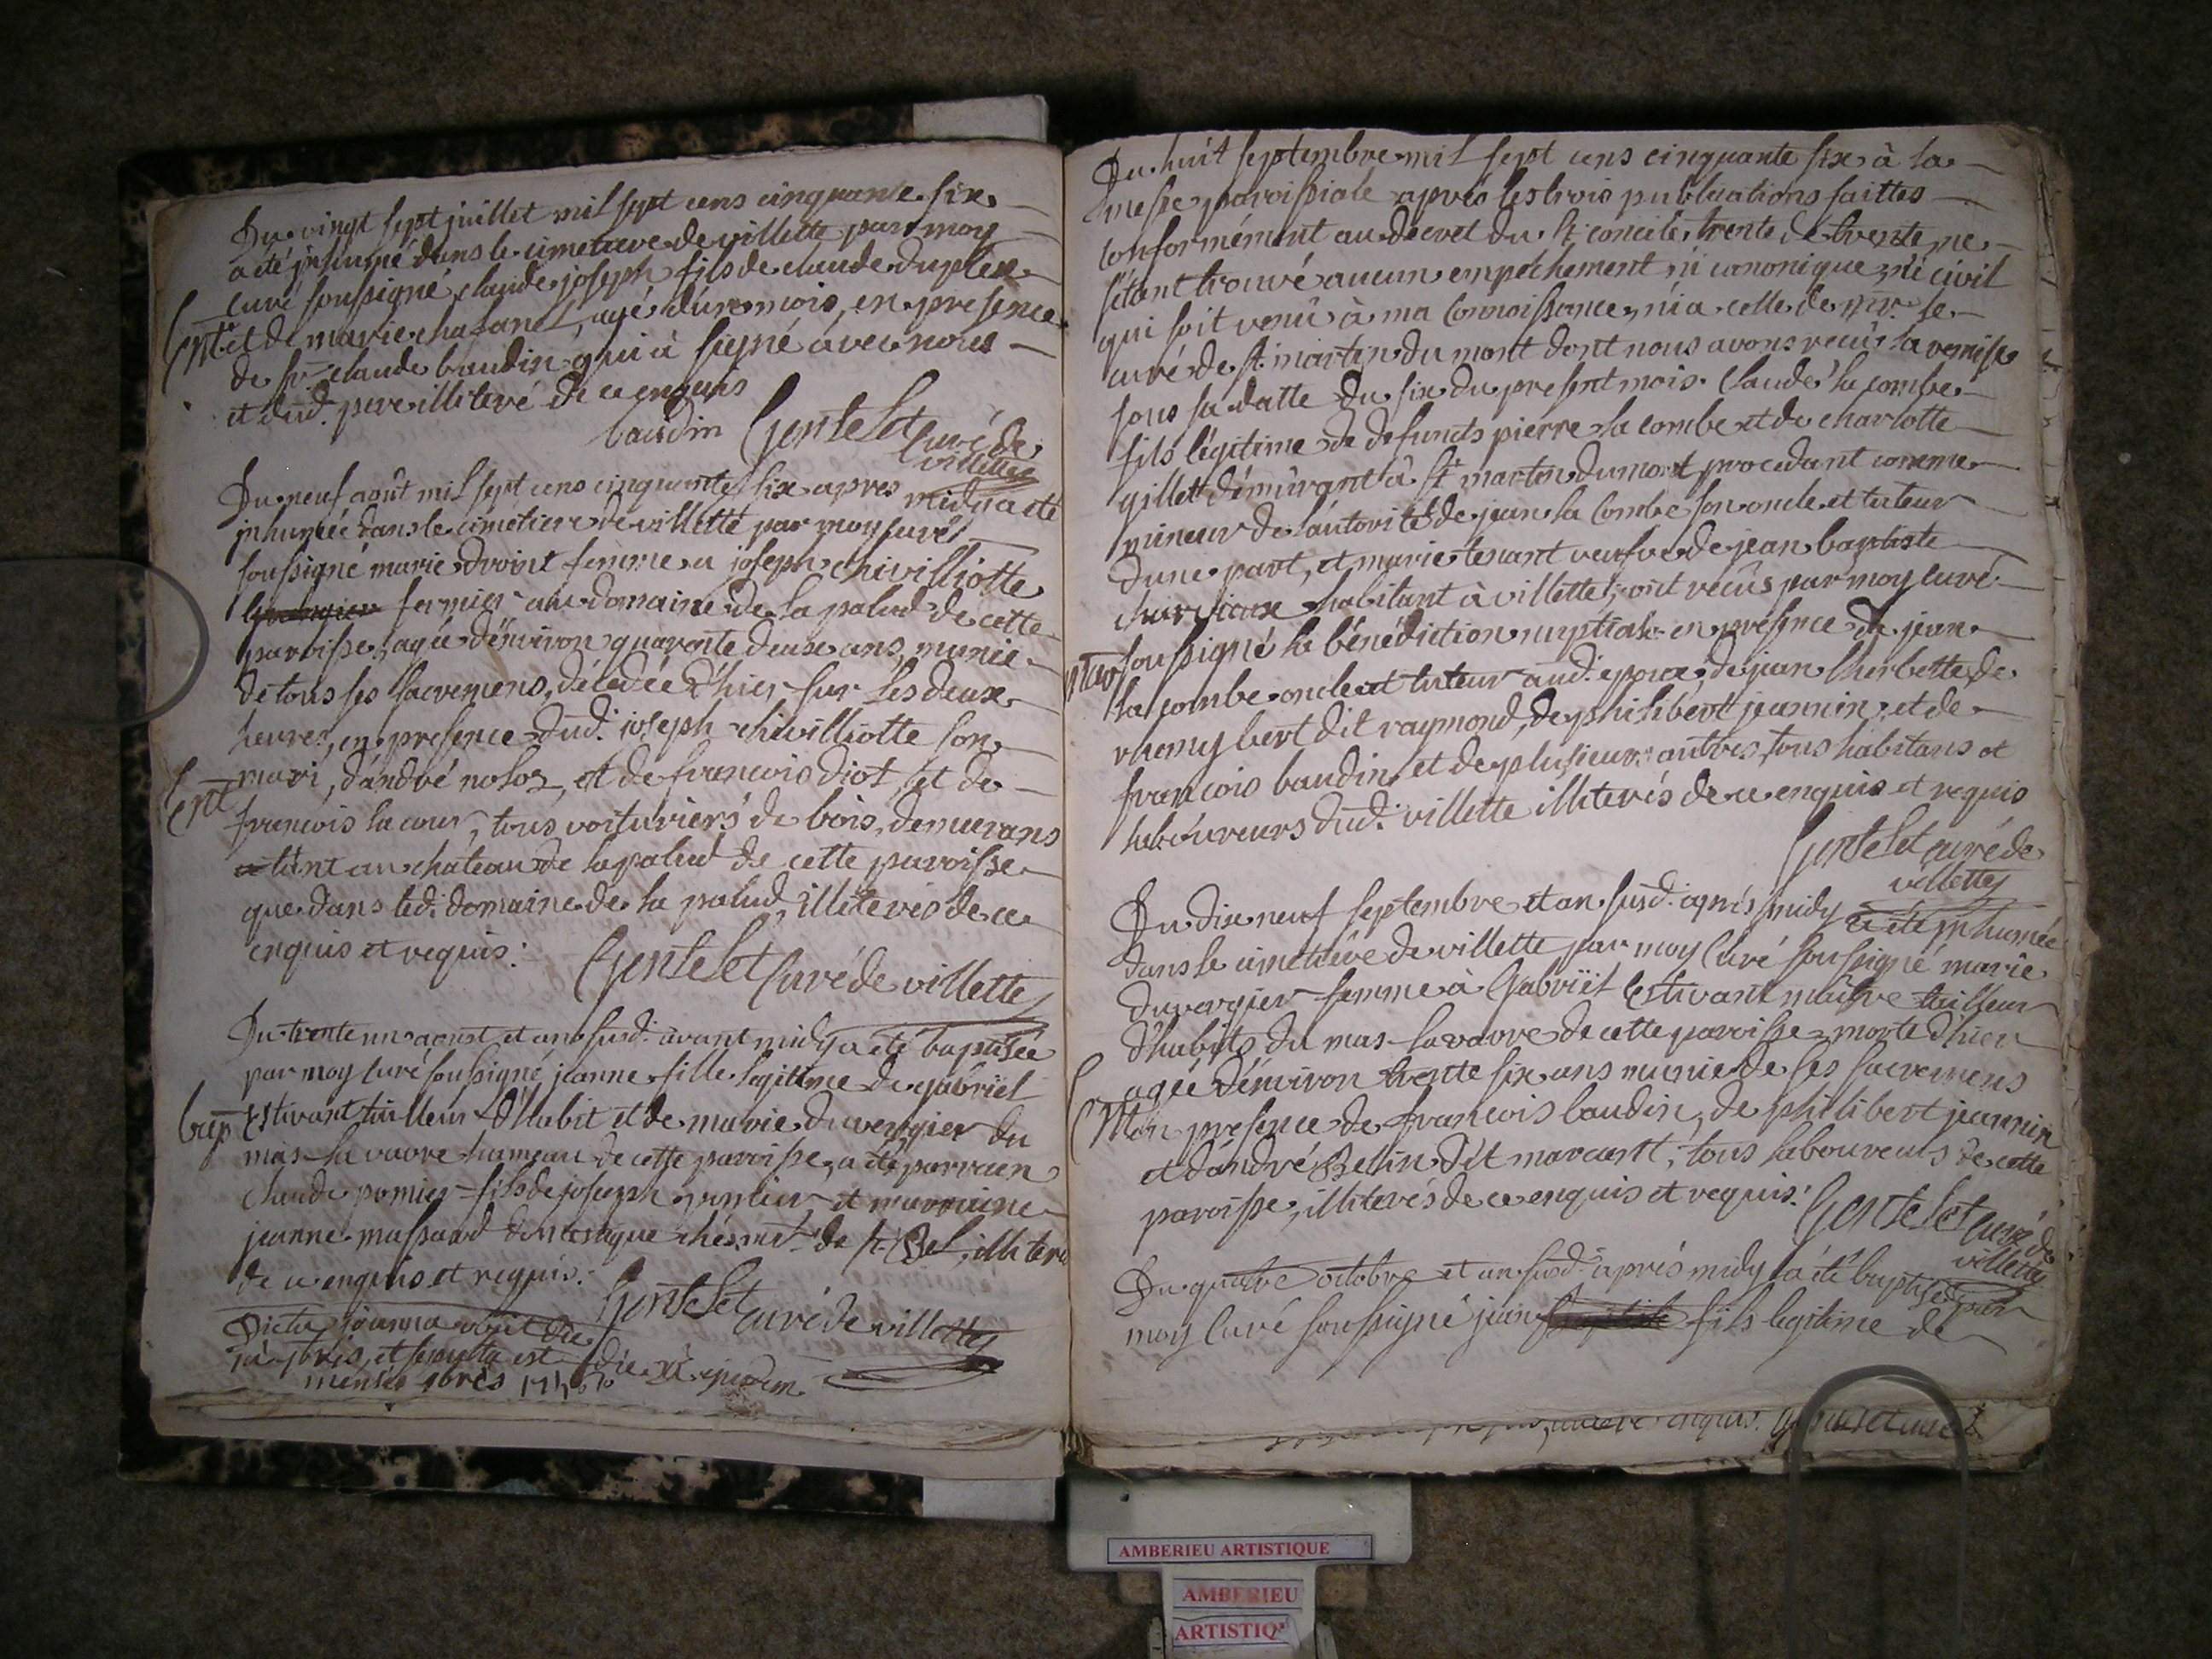 Du vingt sept juillet mil sept cens cinquante six
a été jnhumé dans le cimetiere de villette par moy
curé soussigné, claude joseph fils de claude duplex
Ent. et de marie chafanel, agé d'un mois, en presence
de sr. claude baudin qui à signé avec nous
et dud. pere illiteré de ce enquis
baudin Gentelet Curé de
villette
Du neuf août mil sept cens cinquante six apres midy a été
jnhumée dans le cimetiere de villette par moy Curé
soussigné marie droint femme a joseph chivilliotte
fermier au domaine de la palud de cette
paroisse, agée d'environ quarante deux ans, munie
de tous ses sacremens, décédée d'hier sur les deux
heures, en presence dud. joseph chivilliotte son
mari, d'andré nolos, et de francois diot, et de
Ent francois la cour, tous voituriers de bois, demeurans
tant au château de la palud de cette paroisse
que dans led. domaine de la palud, illiterés de ce
enquis et requis. Gentelet Curé de villette
Du trente un aoust et an susd. avant midy a été baptisée
par moy curé soussigné jeanne fille legitime de gabriel
bap Estivant tailleur d'habit et de marie duvergier du
mas la vavre hameau de cette paroisse, a été parrain
claude pomier fils de joseph et marraine
jeanne massard domestique chés mr. de st. Bel, illiteré
de ce enquis et requis.
Gentelet curé de villette
Dicta joanna obiit die
et sepulta est die XI ejusdem
mensis 7bris 1756
Du huit septembre mil sept cens cinquante six à la
messe paroissiale après les trois publications faittes
conformément au decret du st. concile trente de trente, ne
s'étant trouvé aucun empêchement ni canonique, ni civil
qui soit venû à ma connoissance, ni a celle de mr. le
curé de st. martin du mont dont nous avons recû la remise
sous sa datte du six du present mois. Claude la combe
fils légitime de defunts pierre la combe et de charlotte
gillet démûrant à st. martin du mont procedant comme
mineur de l'autorité de jean la Combe son oncle et tuteur
d'une part, et marie tenant veufve de jean baptiste
habitant à villette, ont recûs par moy curé
soussigné la bénédiction nuptiale en presence de jean
la combe oncle et tuteur aud. epoux, de jean lherbette, de
rhemy bert dit raymond, de philibert jeannin, et de
francois baudin et de plusieurs autres, tous habitans et
laboureurs dud. villette illiterés de ce enquis et requis
Gentelet curé de
villette
Du dix neuf septembre et an susd. aprés midy a été jnhumée
dans le cimetiere de villette par moy Curé soussigné marie
duvergier femme à Gabriël Estivant maître tailleur
d'habits du mas la vavre de cette paroisse morte d'hier
agée d'environ trente six ans munie de ses sacremens
Ent en presence de francois baudin, de philibert jeannin
et d'andré Belin dit marcant, tous laboureurs de cette
paroisse, illiterés de ce enquis et requis. Gentelet curé de
villette
Du quatre octobre et an susd. après midy a été baptisé par
moy Curé soussigné jean fils legitime de
enquis.
AMBERIEU ARTISTIQUE
AMBERIEU
ARTISTIQ